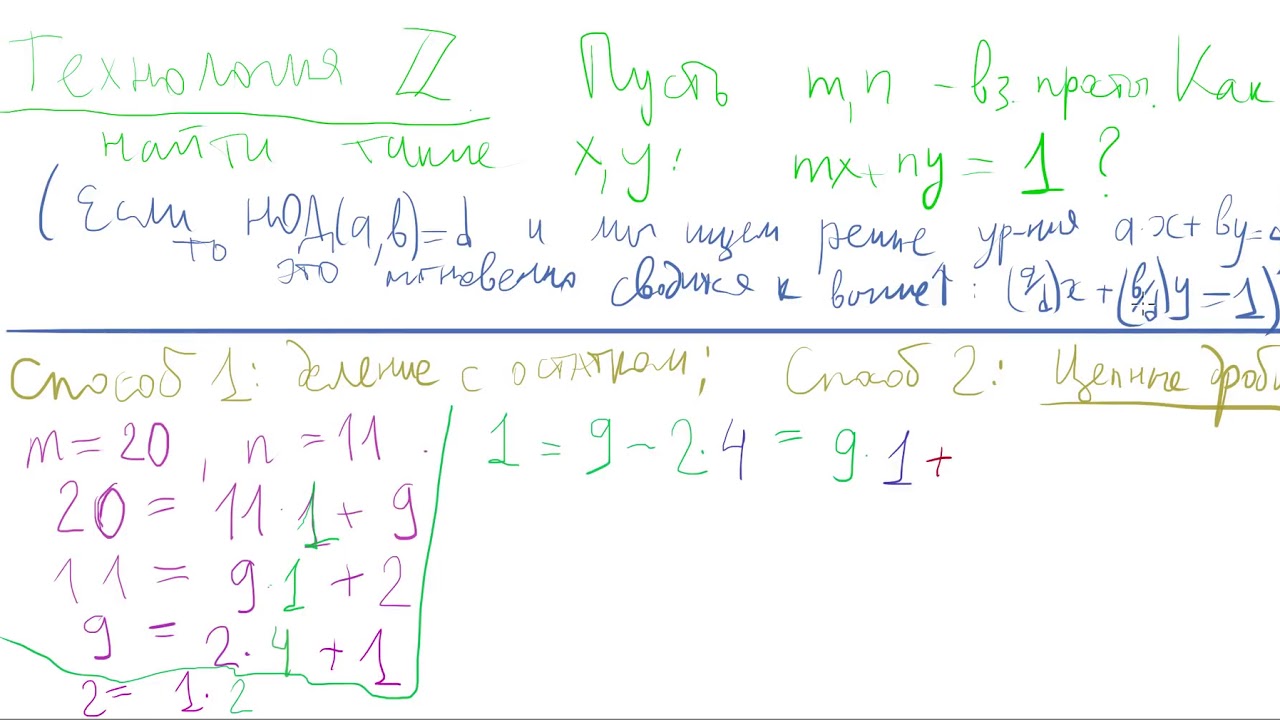 Технология Z Пусть m,n - вз. просты. Как
найти такие x,y: mx+ny=1 ?
(Если НОД(a,b)=d и мы ищем решение ур-ния a·x+by=d
то это мгновенно сводится к : (a/d)x+(b/d)y=1)
Способ 1: деление с остатком; Способ 2: Цепные дроби
m=20, n=11.
20 = 11·1+9
11 = 9·1+2
9 = 2·4+1
2= 1·2
1 = 9-2·4 = 9·1+